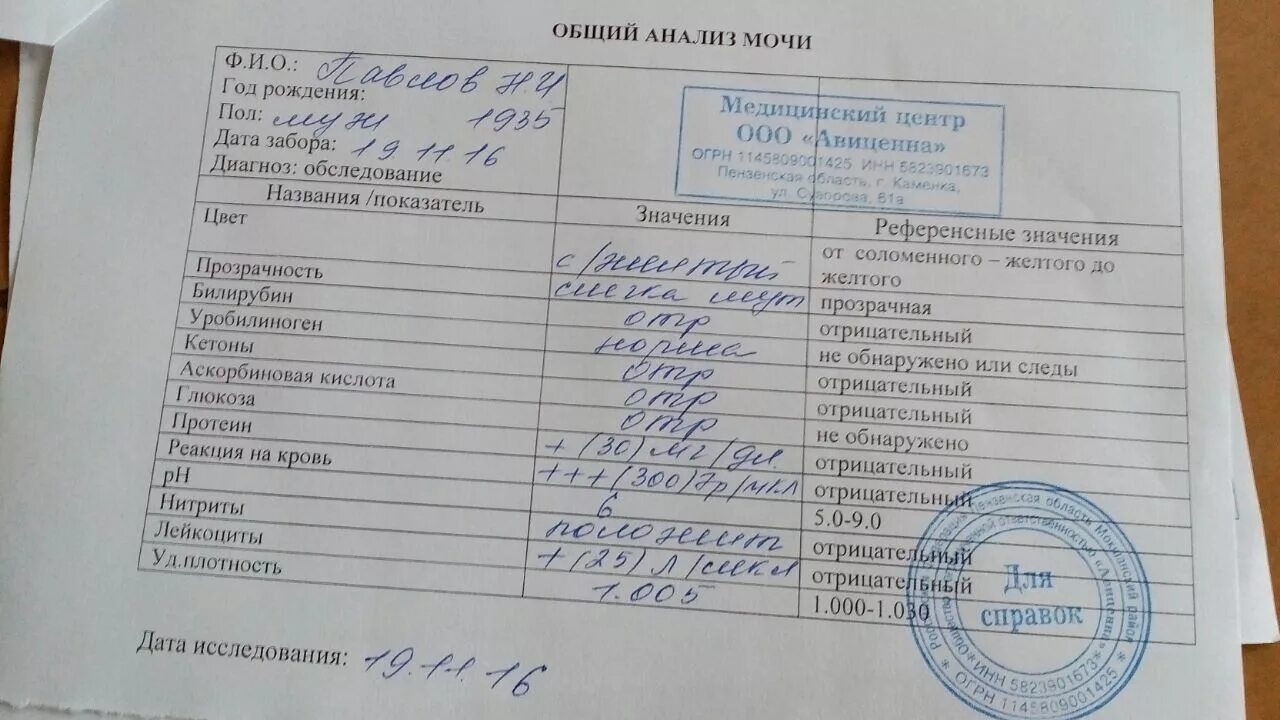 ОБЩИЙ АНАЛИЗ МОЧИ
Ф.И.О.: Павлов Н.И
Год рождения:
Пол: муж 1935
Дата забора: 19.11.16
Диагноз: обследование
Медицинский центр
ООО «Авиценна»
ОГРН 1145809001425 ИНН 5823901673
Пензенская область, г. Каменка,
ул. Суворова, 61а
Названия /показатель Значения Референсные значения
Цвет с/желтый от соломенного – желтого до желтого
Прозрачность слегка мут прозрачная
Билирубин отр отрицательный
Уробилиноген норма не обнаружено или следы
Кетоны отр отрицательный
Аскорбиновая кислота отр отрицательный
Глюкоза отр не обнаружено
Протеин + (30) мг/дл. отрицательный
Реакция на кровь +++(300)Эр/мкл отрицательный
pH 6 5.0-9.0
Нитриты положит отрицательный
Лейкоциты +(25) Л/мкл отрицательный
Уд.плотность 1.005 1.000-1.030
Дата исследования: 19.11.16
Для
справок
Пензенская область Мокшанский район
ответственностью «Авиценна»
* ИНН 5823901673 *
* ОГРН 1145809001425 *